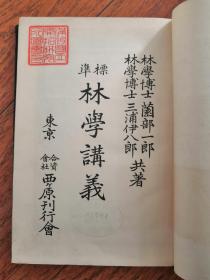 林學博士 薗部一郎
林學博士 三浦伊八郎 共著
標準
林學講義
東京 合資會社 西ヶ原刊行會